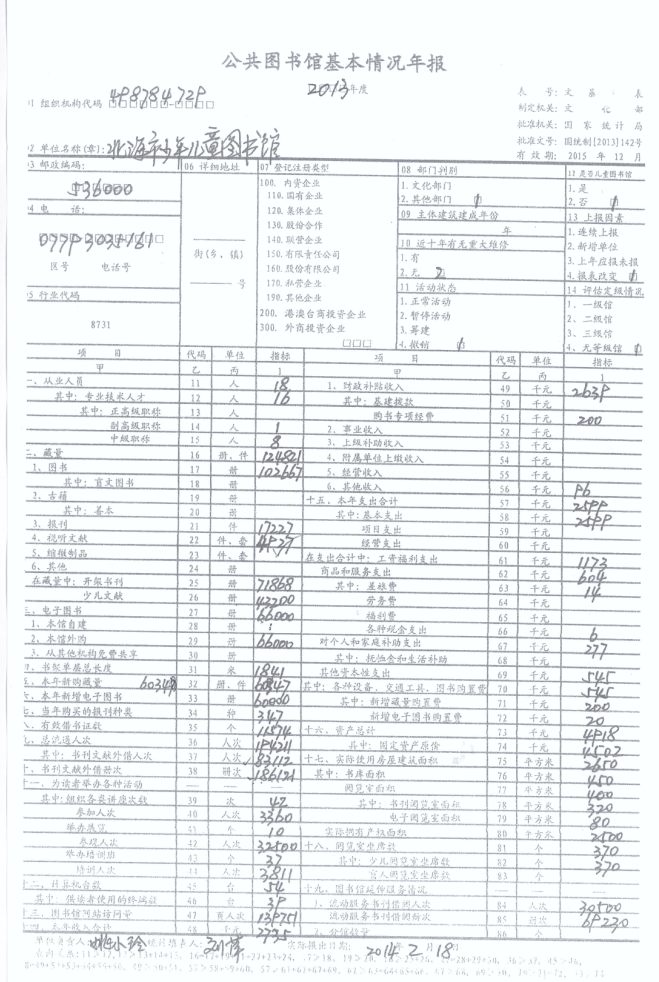 公共图书馆基本情况年报
2013年度
表 号: 文 基 表
制定机关: 文 化 部
批准机关: 国 家 统 计 局
批准文号: 国统制[2013]142号
有 效 期: 2015 年 12 月
01 组织机构代码
02 单位名称(章): 北海市少年儿童图书馆
03 邮政编码:
536000
04 电 话:
区号 电话号
05 行业代码
8731
06 详细地址
街(乡、镇)
号
07 登记注册类型
100. 内资企业
110. 国有企业
120. 集体企业
130. 股份合作
140. 联营企业
150. 有限责任公司
160. 股份有限公司
170. 私营企业
190. 其他企业
200. 港澳台商投资企业
300. 外商投资企业
08 部门判别
1. 文化部门
2. 其他部门
09 主体建筑建成年份
年
10 近十年有无重大维修
1. 有
2. 无
11 活动状态
1. 正常活动
2. 暂停活动
3. 筹建
4. 撤销
12 是否儿童图书馆
1. 是
2. 否
13 上报因素
1. 连续上报
2. 新增单位
3. 上年应报未报
4. 报表改变
14 评估定级情况
1、一级馆
2、二级馆
3、三级馆
4、无等级馆
项 目 代码 单位 指标 项 目 代码 单位 指标
甲 乙 丙 1 甲 乙 丙 1
一、从业人员 11 人 18 1、财政补贴收入 49 千元
其中: 专业技术人才 12 人 16 其中: 基建拨款 50 千元
其中: 正高级职称 13 人 购书专项经费 51 千元 200
副高级职称 14 人 1 2、事业收入 52 千元
中级职称 15 人 8 3、上级补助收入 53 千元
二、藏量 16 册、件 124821 4、附属单位上缴收入 54 千元
1、图书 17 册 102667 5、经营收入 55 千元
其中: 盲文图书 18 册 6、其他收入 56 千元 96
2、古籍 19 册 十五、本年支出合计 57 千元 2599
其中: 善本 20 册 其中:基本支出 58 千元 2599
3、报刊 21 件 17227 项目支出 59 千元
4、视听文献 22 件、套 4927 经营支出 60 千元
5、缩微制品 23 件、套 在支出合计中: 工资福利支出 61 千元 1173
6、其他 24 册 商品和服务支出 62 千元 604
在藏量中: 开架书刊 25 册 71868 其中: 差旅费 63 千元 14
少儿文献 26 册 42200 劳务费 64 千元
三、电子图书 27 册 66000 福利费 65 千元
1、本馆自建 28 册 各种税金支出 66 千元 6
2、本馆外购 29 册 66000 对个人和家庭补助支出 67 千元 277
3、从其他机构免费共享 30 册 其中: 抚恤金和生活补助 68 千元
四、书架单层总长度 31 米 1841 其他资本性支出 69 千元 545
五、本年新购藏量 32 册、件 其中: 各种设备、交通工具、图书购置费 70 千元 545
六、本年新增电子图书 33 册 60000 其中: 新增藏量购置费 71 千元 200
七、当年购买的报刊种类 34 种 347 新增电子图书购置费 72 千元 20
八、有效借书证数 35 个 11574 十六、资产总计 73 千元 4918
九、总流通人次 36 人次 194211 其中: 固定资产原价 74 千元 4502
其中: 书刊文献外借人次 37 人次 83112 十七、实际使用房屋建筑面积 75 平方米 2650
十、书刊文献外借册次 38 册次 186121 其中: 书库面积 76 平方米 450
十一、为读者举办各种活动 阅览室面积 77 平方米 400
其中:组织各类讲座次数 39 次 42 其中: 书刊阅览室面积 78 平方米 320
参加人次 40 人次 3360 电子阅览室面积 79 平方米 80
举办展览 41 个 10 实际拥有产权面积 80 平方米 2500
参观人次 42 人次 32500 十八、阅览室坐席数 81 个 370
举办培训班 43 个 37 其中: 少儿阅览室坐席数 82 个 370
培训人次 44 人次 3811 盲人阅览室坐席数 83 个
十二、计算机台数 45 台 54 十九、图书馆延伸服务情况
其中: 供读者使用的终端数 46 台 39 1、流动服务书刊借阅人次 84 人次 30500
十三、图书馆网站访问量 47 页人次 139751 流动服务书刊借阅册次 85 册次 69230
十四、本年收入合计 48 千元 2735 2、分馆数量 86 个
单位负责人: 统计填表人: 实际报出日期: 2014 年 2 月 18 日